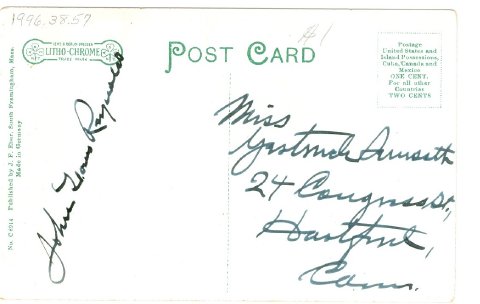 1996.38.57
#1
LITHO-CHROME
TRADE MARK
POST CARD
Postage
United States and
Island Possessions,
Cuba, Canada and
Mexico
ONE CENT.
For all other
Countries
TWO CENTS
No. C6914 Published by J. F. Eber, South Framingham, Mass.
Made in Germany
John Reynolds
Miss
24 Congress St.,
Hartford,
Conn.